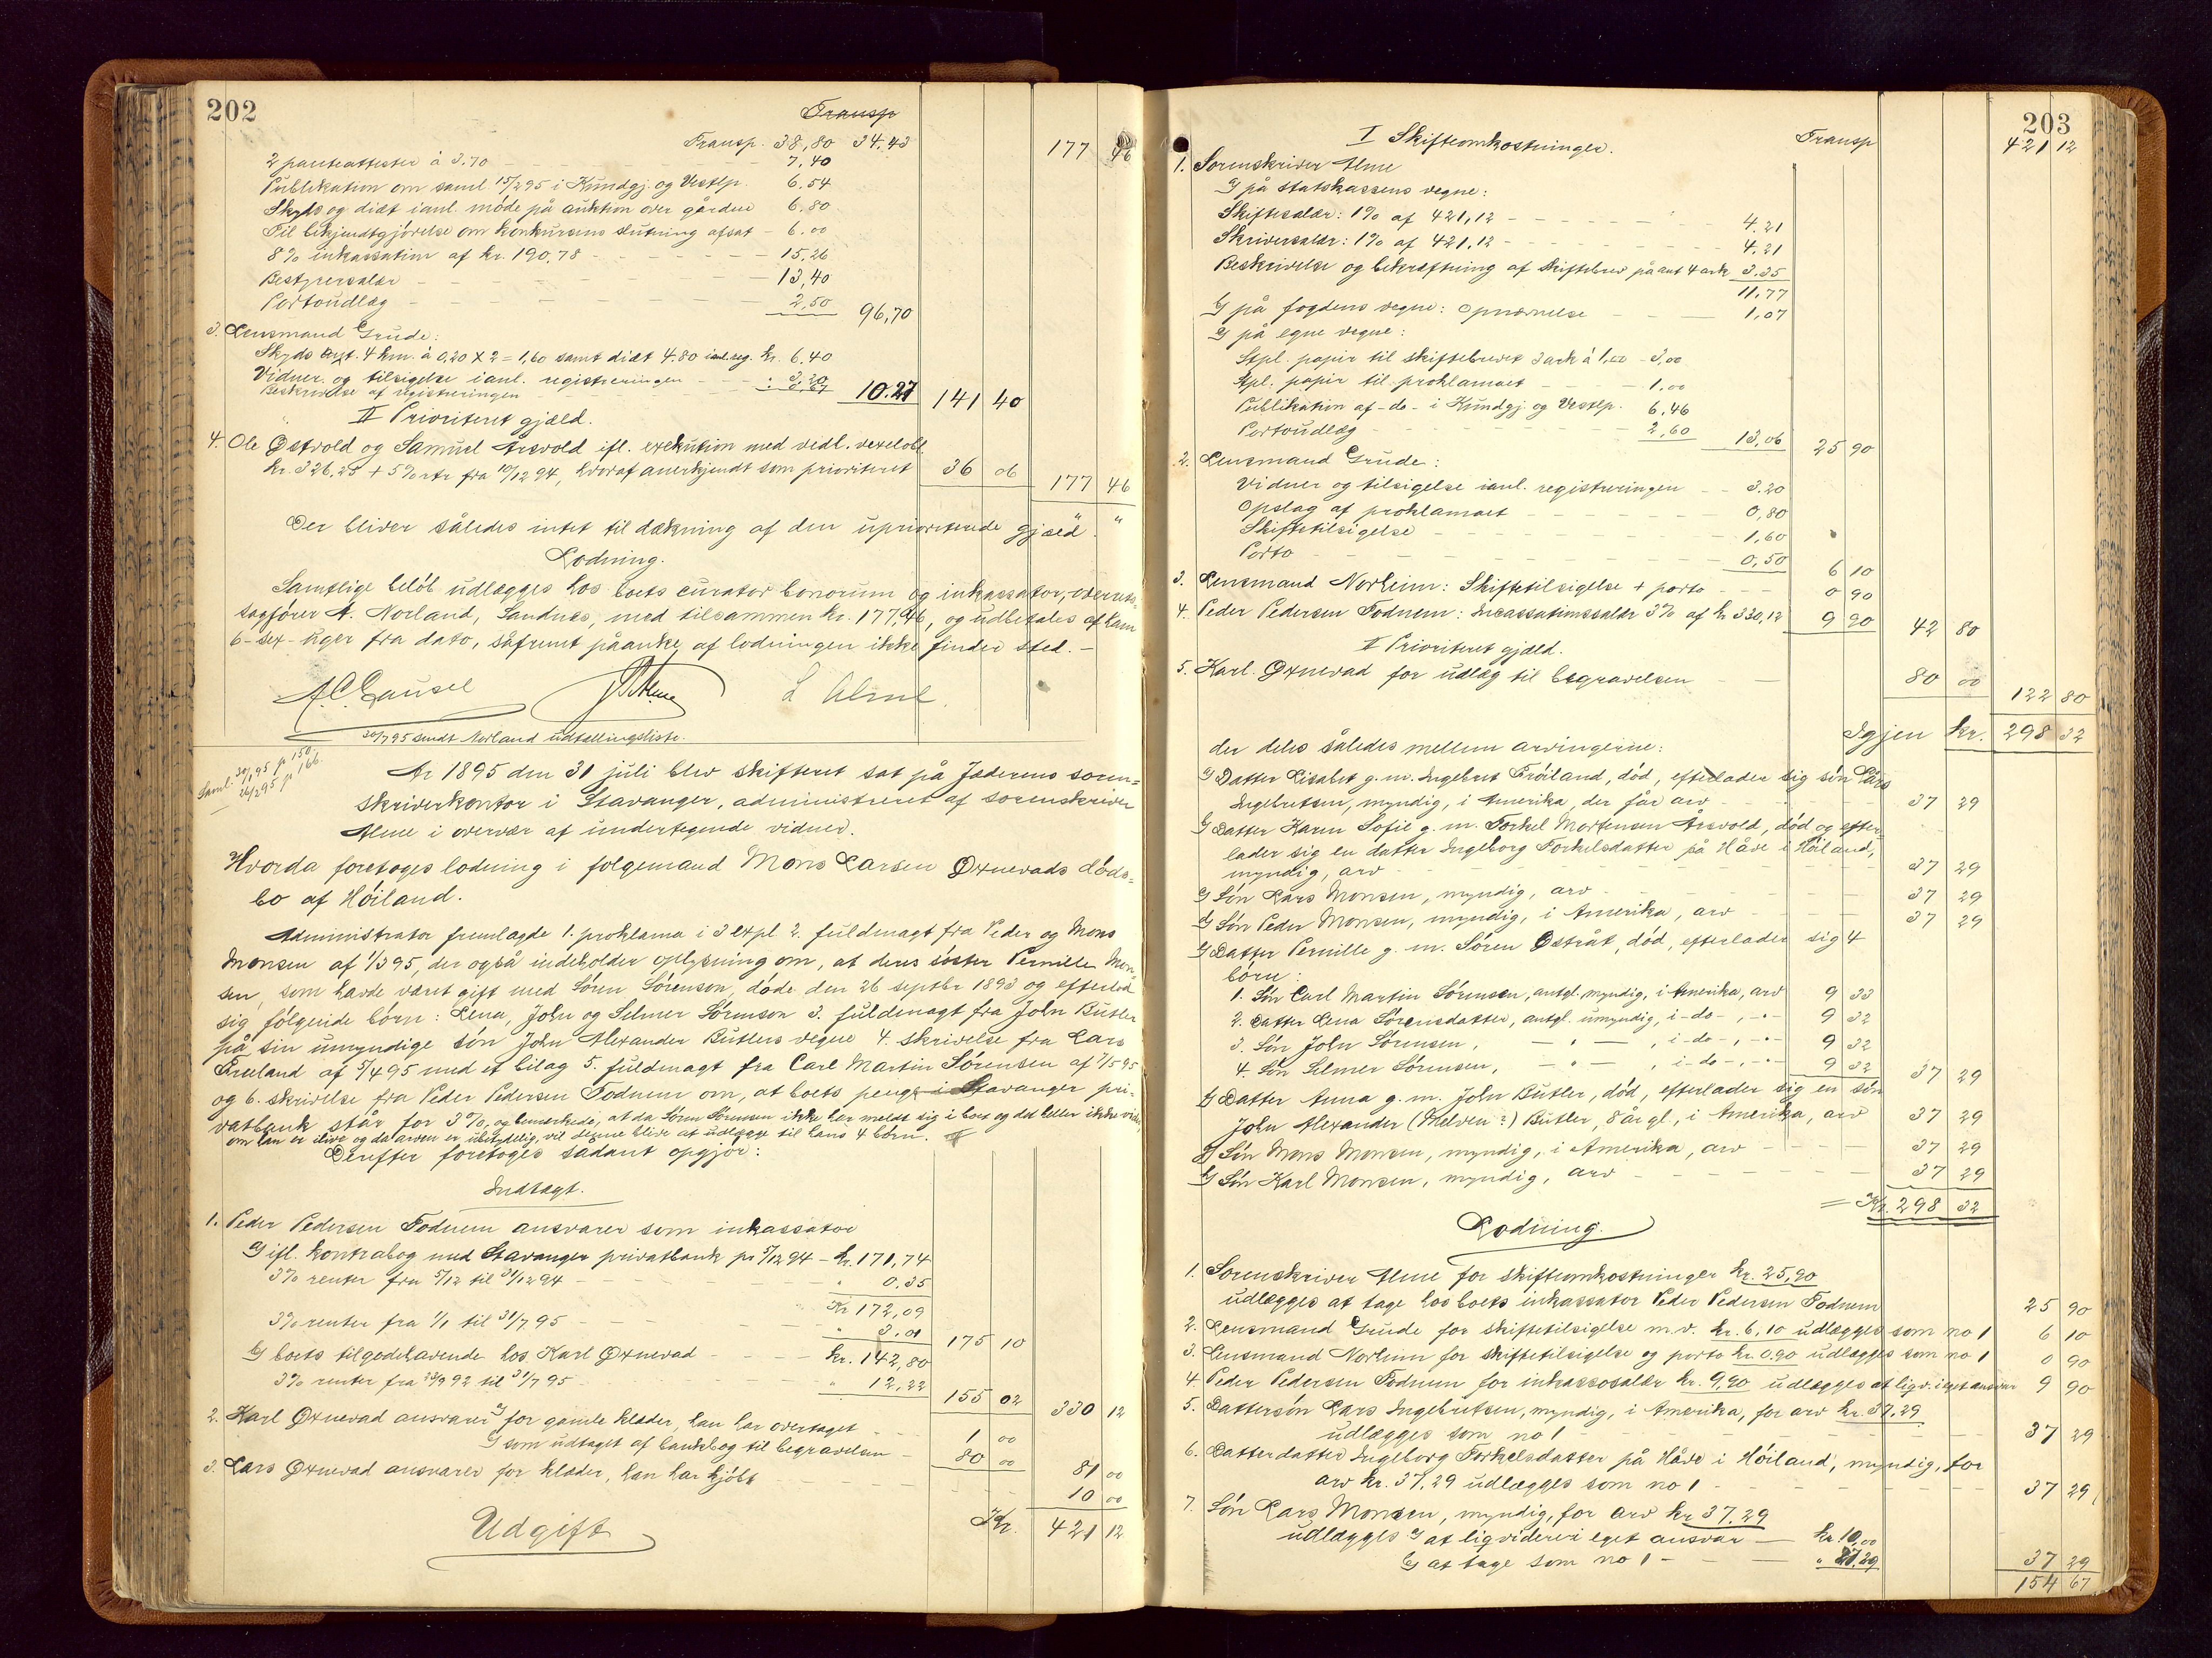 202
Transp
Transp. 38,80 34.43 177 46
2 panteattester à 3.70 - - - 7,40
Publikation om saml. 15/2 95 i Kundgj. og Vestlp. 6.54
Skyds og diæt i anl. møde på auktion over gården 6.80
Til bekjendtgjørelse om konkursens slutning afsat - 6.00
8 % inkassation af kr. 190.78 - - - 15.26
Bestyrersalær - - - 13,40
Portoudlæg - - - 2,50 96,70
3. Lensmand Grude:
Skyds 4 km. à 0,20 X 2 = 1,60 samt diæt 4.80 i anl. reg. kr. 6,40
Vidner og tilsigelse i anl. registreringen - - 3,20
Beskrivelse af registreringen - - 0,67 10.27 141 40
II Prioriteret gjæld.
4. Ole Østvold og Samuel Årsvold ifl. exekution med vedl. vexelobl.
kr. 326,25 + 5 % rtr fra 10/12 94, hvoraf anerkjendt som prioriteret 36 06 177 46
Der bliver således intet til dækning af den uprioriterede gjæld. " "
Lodning.
Samtlige beløb udlægges hos boets curator bonorum og inkassator, overrets-
sagfører A. Norland, Sandnes, med tilsammen kr. 177,46, og udbetales af ham
6 - sex - uger fra dato, såfremt påanke af lodningen ikke finder sted. -
A. C. Gausel Alme L Alme
30/7 95 sendt Norland udtællingsliste.
Saml. 30/1 95 p 150
26/2 95 p 166.
År 1895 den 31 juli blev skifteret sat på Jæderens soren-
skriverkontor i Stavanger, administreret af sorenskriver
Alme i overvær af undertegnede vidner.
Hvorda foretoges lodning i følgemand Mons Larsen Øxnevads døds-
bo af Høiland.
Administrator fremlagde 1. proklama i 3 expl 2. fuldmagt fra Peder og Mons
Monsen af 1/3 95, der også indeholder oplysning om, at deres søster Pernille Mon-
sen, som havde været gift med Søren Sørenson, døde den 26 septbr 1893 og efterlod
sig følgende børn: Lena, John og Selmer Sørenson 3. fuldmagt fra John Butler
på sin umyndige søn John Alexander Butlers vegne 4. skrivelse fra Lars
Freeland af 5/4 95 med et bilag 5. fuldmagt fra Carl Martin Sørensen af 7/5 95
og 6. skrivelse fra Peder Pedersen Fodnem om, at boets penge i Stavanger pri-
vatbank står for 3 %, og bemerkede, at da Søren Sørensen ikke har meldt sig i boet og det heller ikke vides,
om han er ilive og da arven er ubetydelig, vil denne blive at udlægge til hans 4 børn.
Derefter foretoges sådant opgjør:
Indtægt.
1. Peder Pedersen Fodnem ansvarer som inkassator
a) ifl. kontrabog med Stavanger privatbank pr 5/12 94 - kr. 171,74
3 % renter fra 5/12 til 31/12 94 - - - " 0.35
Kr 172,09
3 % renter fra 1/1 til 31/7 95 - - - " 3.01 175 10
b) boets tilgodehavende hos Karl Øxnevad - - - kr. 142,80
3 % renter fra 23/9 92 til 31/7 95 - - - " 12,22 155 02 330 12
2. Karl Øxnevad ansvarer a) for gamle klæder, han har overtaget - - 1 00
b) som udtaget af bankbog til begravelsen - 80 00 81 00
3. Lars Øxnevad ansvarer for klæder, han har kjøbt - - - 10 00
Kr. 421 12
Udgift
203
I Skifteomkostninger. Transp 421 12
1. Sorenskriver Alme
a) på statskassens vegne:
Skiftesalær: 1 % af 421,12 - - - 4.21
Skriversalær: 1 % af 421.12 - - - 4.21
Beskrivelse og bekræftning af skiftebrev på ant 4 ark 3.35
11.77
b) på fogdens vegne: Opnævnelse - - - 1,07
c) på egne vegne:
Stpl. papir til skiftebrevet 3 ark à 1,00 - 3,00
Stpl. papir til proklamaet - - - 1.00
Publikation af - do - i Kundgj. og Vestlp. 6,46
Portoudlæg - - - 2,60 13,06 25 90
2. Lensmand Grude:
Vidner og tilsigelse i anl. registreringen - - 3.20
Opslag af proklamaet - - - 0,80
Skiftetilsigelse - - - 1,60
Porto - - - 0,50 6 10
3. Lensmand Norheim: Skiftetilsigelse + porto - - - 0 90
4. Peder Pedersen Fodnem: Incassationssalær 3 % af kr 330,12 9 90 42 80
II Prioriteret gjæld.
5. Karl Øxnevad for udlæg til begravelsen - - 80 00 122 80
Igjen kr. 298 32
der deles således mellem arvingerne:
a) Datter Lisabet g. m. Ingebret Frøiland, død, efterlader sig søn Lars
Ingebretsen, myndig, i Amerika, der får arv - - - 37 29
b) Datter Karen Sofie g. m. Torkel Mortensen Årsvold, død og efter-
lader sig en datter Ingeborg Torkelsdatter på Håve i Høiland,
myndig, arv - - - 37 29
c) Søn Lars Monsen, myndig, arv - - - 37 29
d) Søn Peder Monsen, myndig, i Amerika, arv - - - 37 29
e) Datter Pernille g. m. Søren Østråt, død, efterlader sig 4
børn:
1. Søn Carl Martin Sørensen, antgl. myndig, i Amerika, arv 9 33
2. Datter Lena Sørensdatter, antgl. umyndig, i - do - , - " - 9 32
3. Søn John Sørensen, - " - , i - do - , - " - 9 32
4. Søn Selmer Sørensen, - " - , i - do - , - " - 9 32 37 29
f) Datter Anna g. m. John Butler, død, efterlader sig en søn
John Alexander (Melven?) Butler, 8 år gl., i Amerika, arv 37 29
g) Søn Mons Monsen, myndig, i Amerika, arv - - - 37 29
h) Søn Karl Monsen, myndig, arv - - - 37 29
= Kr. 298 32
Lodning.
1. Sorenskriver Alme for skifteomkostninger kr. 25,90
udlægges at tage hos boets inkassator Peder Pedersen Fodnem 25 90
2. Lensmand Grude for skiftetilsigelse m. v. kr. 6,10 udlægges som no 1 6 10
3. Lensmand Norheim for skiftetilsigelse og porto kr. 0.90 udlægges som no 1 0 90
4. Peder Pedersen Fodnem for inkassosalær kr. 9,90 udlægges at liqv. i eget ansvar 9 90
5. Dattersøn Lars Ingebretsen, myndig, i Amerika, for arv kr. 37,29
udlægges som no 1 - - - 37 29
6. Datterdatter Ingeborg Torkelsdatter på Håve i Høiland, myndig, for
arv kr. 37,29 udlægges som no 1 - - - 37 29
7. Søn Lars Monsen, myndig, for arv kr 37,29
udlægges a) at liqviderer i eget ansvar - kr 10,00
b) at tage som no 1 - - - " 27,29 37 29
154 67